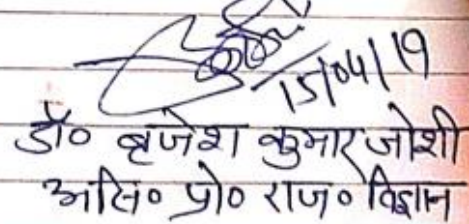 15/04/19
डॉ० बृजेश कुमार जोशी
असि० प्रो० राज० विज्ञान